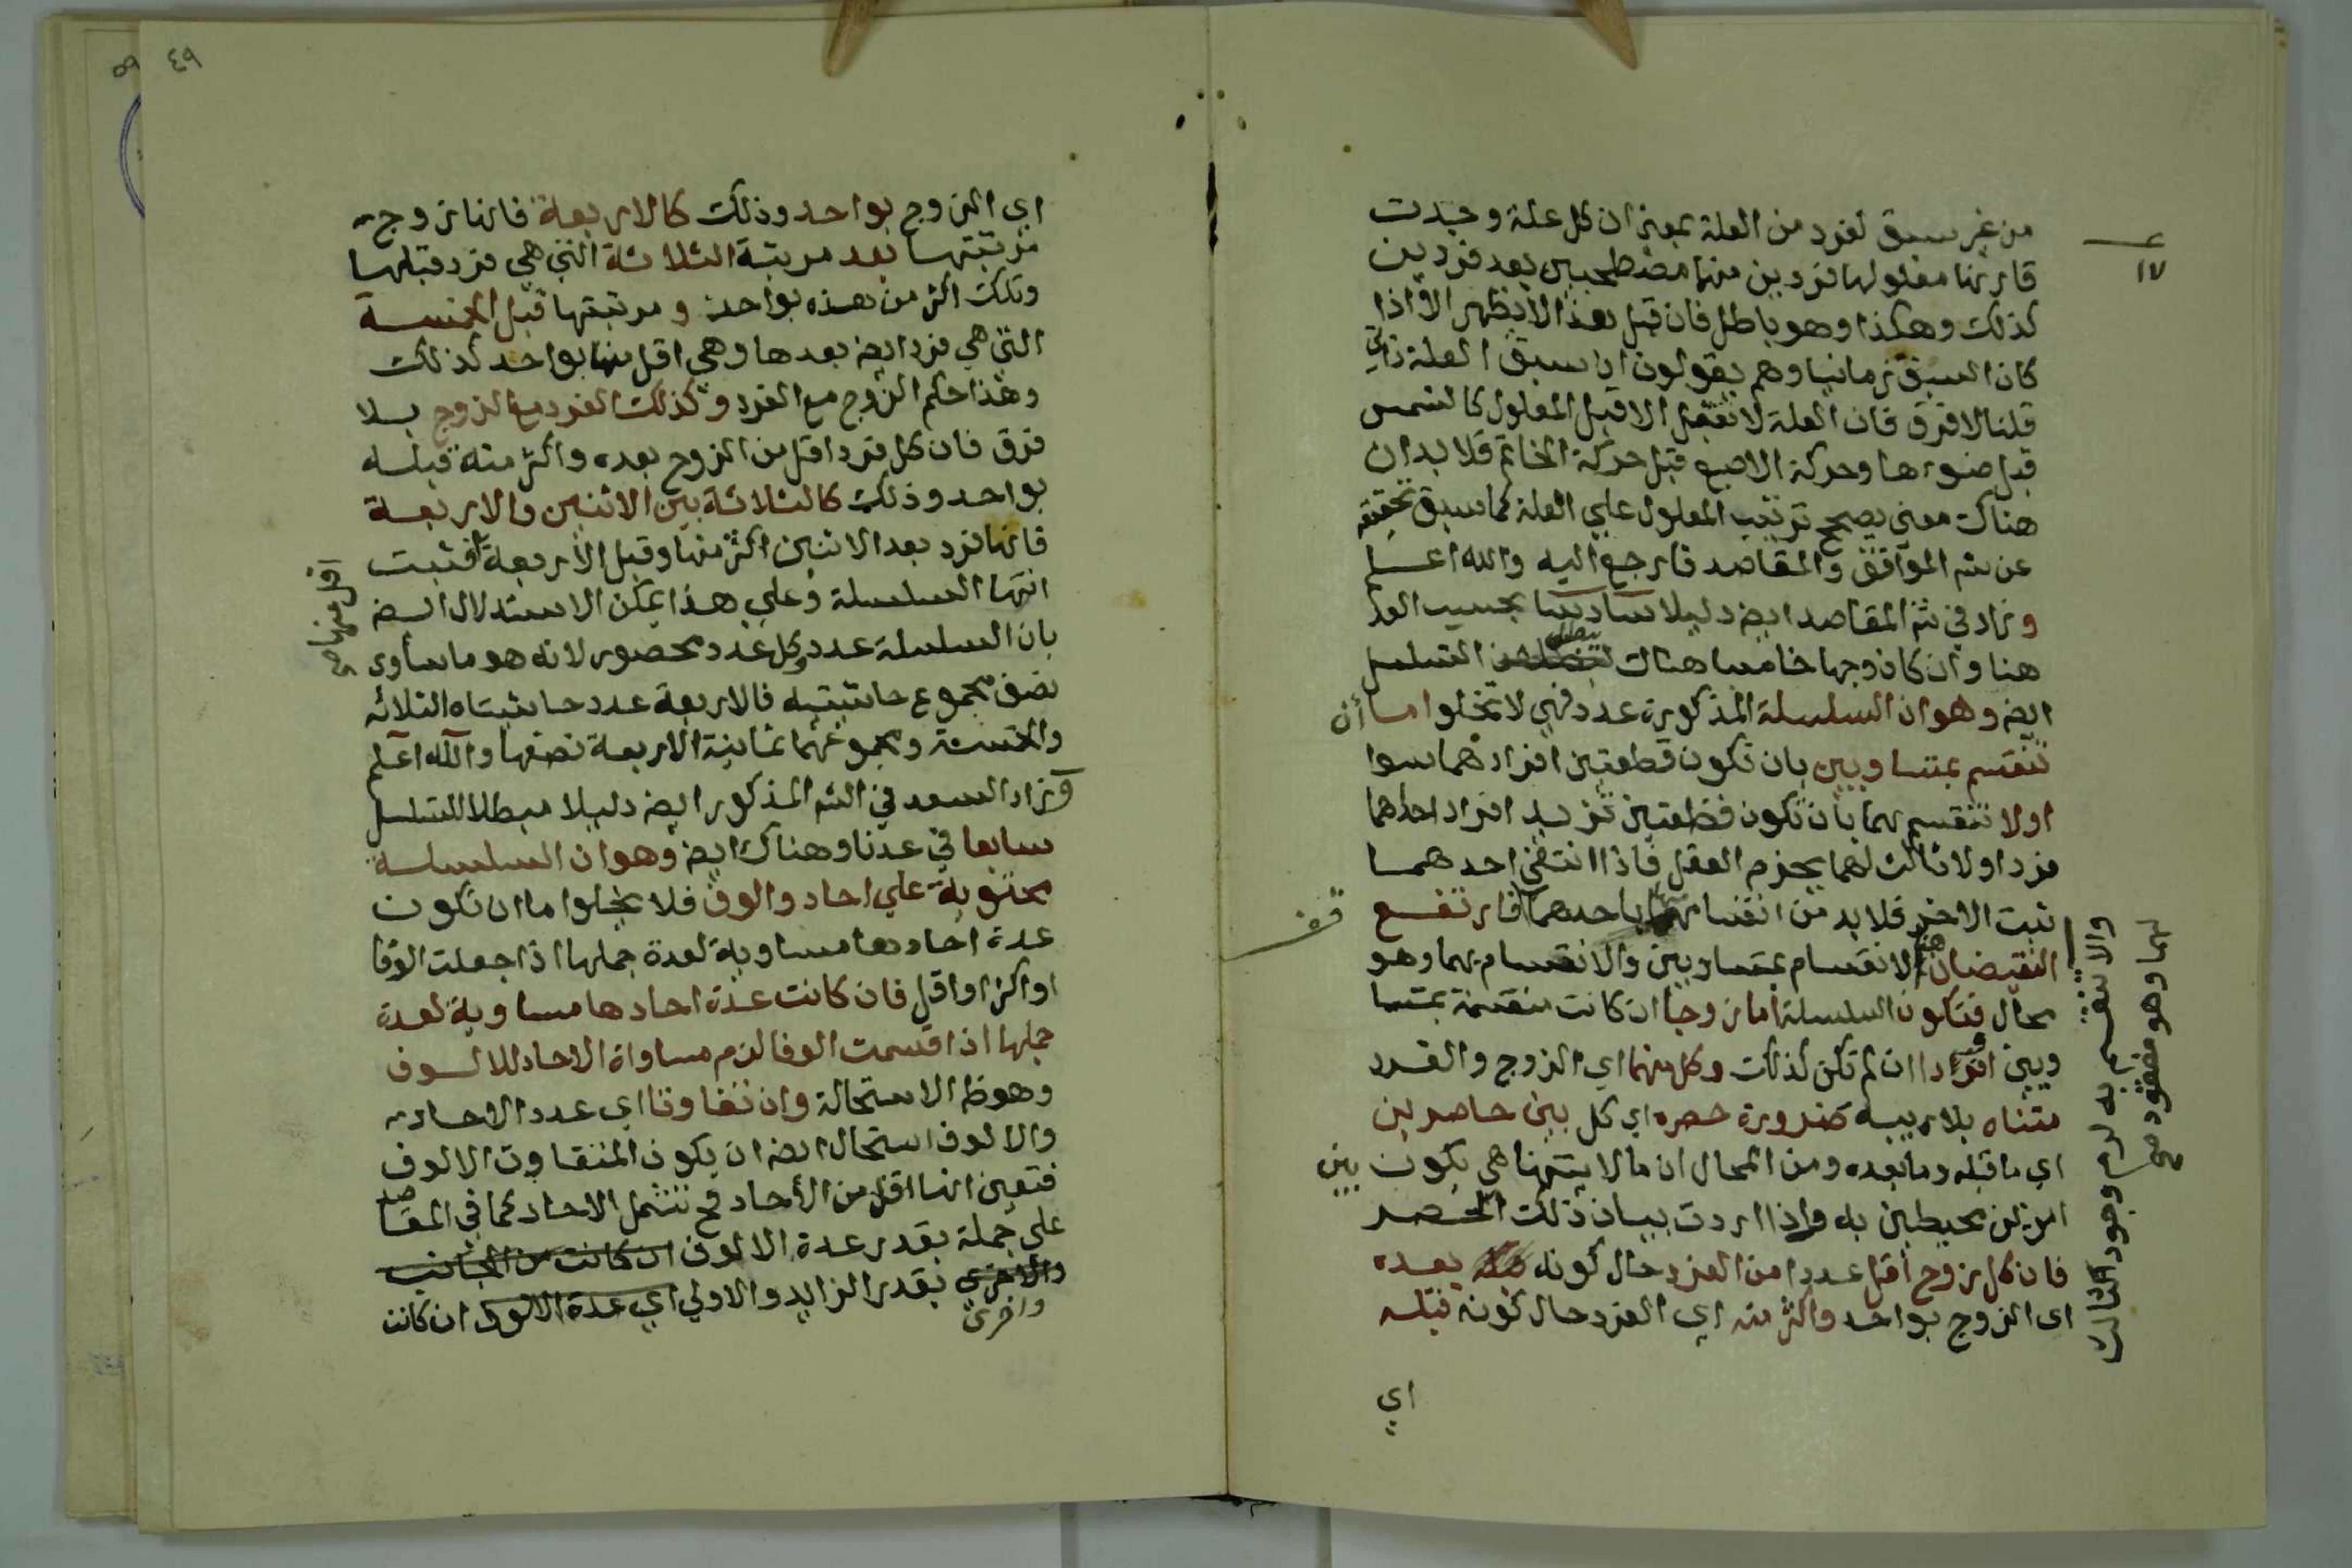 من غير سبق لفرد من العلة بمعنى ان كل علة وجدت
قارنها معلولها فردين منهما مصطحبين بعد فردين
كذلك وهكذا وهو باطل فان قيل هذا لا يظهر الا اذا
كان السبق زمانيا وهم يقولون ان سبق العلة ذاتي
قلنا لا فرق فان العلة لا تعقل الا قبل المعلول كالشمس
قبل ضوءها وحركة الاصبع قبل حركة الخاتم فلا بد ان
هناك معنى يصحح ترتيب المعلول علي العلة كما سبق تحقيقه
عن شر المواقف والمقاصد فارجع اليه والله اعلم
وزاد في شر المقاصد ايض دليلا سادسا بحسب العد
هنا وان كان وجها خامسا هناك يبطل التسلسل
ايض وهو ان السلسلة المذكورة عدد فهي لا تخلوا اما أن
تنقسم بمتساويين بان تكون قطعتين افرادهما سوا
اولا تنقسم بهما بأن تكون قطعتين تزيد افراد احداهما
فردا ولا ثالث لهما بجزم العقل فاذا انتفى احدهما
ثبت الاخر فلا بد من انقسامها باحدهما فارتفع
النقيضان الانقسام بمتساويين والانقسام بهما وهو
محال فتكون السلسلة اما زوجا ان كانت منقسمة بمتسا
ويين او فردا ان لم تكن كذلك وكل منهما اي الزوج والفرد
متناه بلا ريبه ضرورة حصره اي كل بين حاصرين
اي ما قبله وما بعده ومن المحال ان ما لا يتناهى يكون بين
امرين محيطين به واذا اردت بيان ذلك الحصر
فان كل زوج اقل عددا من الفرد حال كونه بعده
اى الزوج بواحد واكثر منه اي الفرد حال كونه قبله
اي
١٧
قف
والا تنقسم به لزم وجود الثالث
لهما وهو مفقود صح
٤٩
٥٩
اي الزوج بواحد وذلك كالاربعة فانها زوج
مرتبتها بعد مرتبة الثلاثة التي هي فرد قبلها
وتلك اكثر من هذه بواحد ومرتبتها قبل الخمسة
التي هي فرد ايض بعدها وهي اقل منها بواحد كذلك
وهذا حكم الزوج مع الفرد وكذلك الفرد مع الزوج بلا
فرق فان كل فرد اقل من الزوج بعده واكثر منه قبله
بواحد وذلك كالثلاثة بين الاثنين والاربعة
فانها فرد بعد الاثنين اكثر منها وقبل الاربعة فثبت
اقل منها صح
انتها السلسلة وعلي هذا يمكن الاستدلال ايض
بان السلسلة عدد وكل عدد محصور لانه هو ما ساوى
نصف مجموع حاشيتيه فالاربعة عدد حاشيتاه الثلاثه
والخمسة ومجموعهما ثمانية الاربعة نصفها والله اعلم
وزاد السعد في الشر المذكور ايض دليلا مبطلا للتسلسل
سابعا في عدنا وهناك ايض وهو ان السلسلة
محتوية علي احاد والوف فلا يخلوا اما ان تكون
عدة احادها مساوية لعدة جملها اذا جعلت الوفا
او اكثر او اقل فان كانت عدة احادها مساوية لعدة
جملها اذا قسمت الوفا لزم مساواة الاحاد للالوف
وهو ظ الاستحالة وان تفاوتا اي عدد الاحاد
والالوف استحال ايض ان يكون المتفاوت الالوف
فتعين انها اقل من الأحاد فح تشتمل الاحاد كما في المقاصد
على جملة بقدر عدة الالوف ان كانت من الجانب
والاخرى بقدر الزايد والاولي اي عدة الالوف ان كانت
واخرى